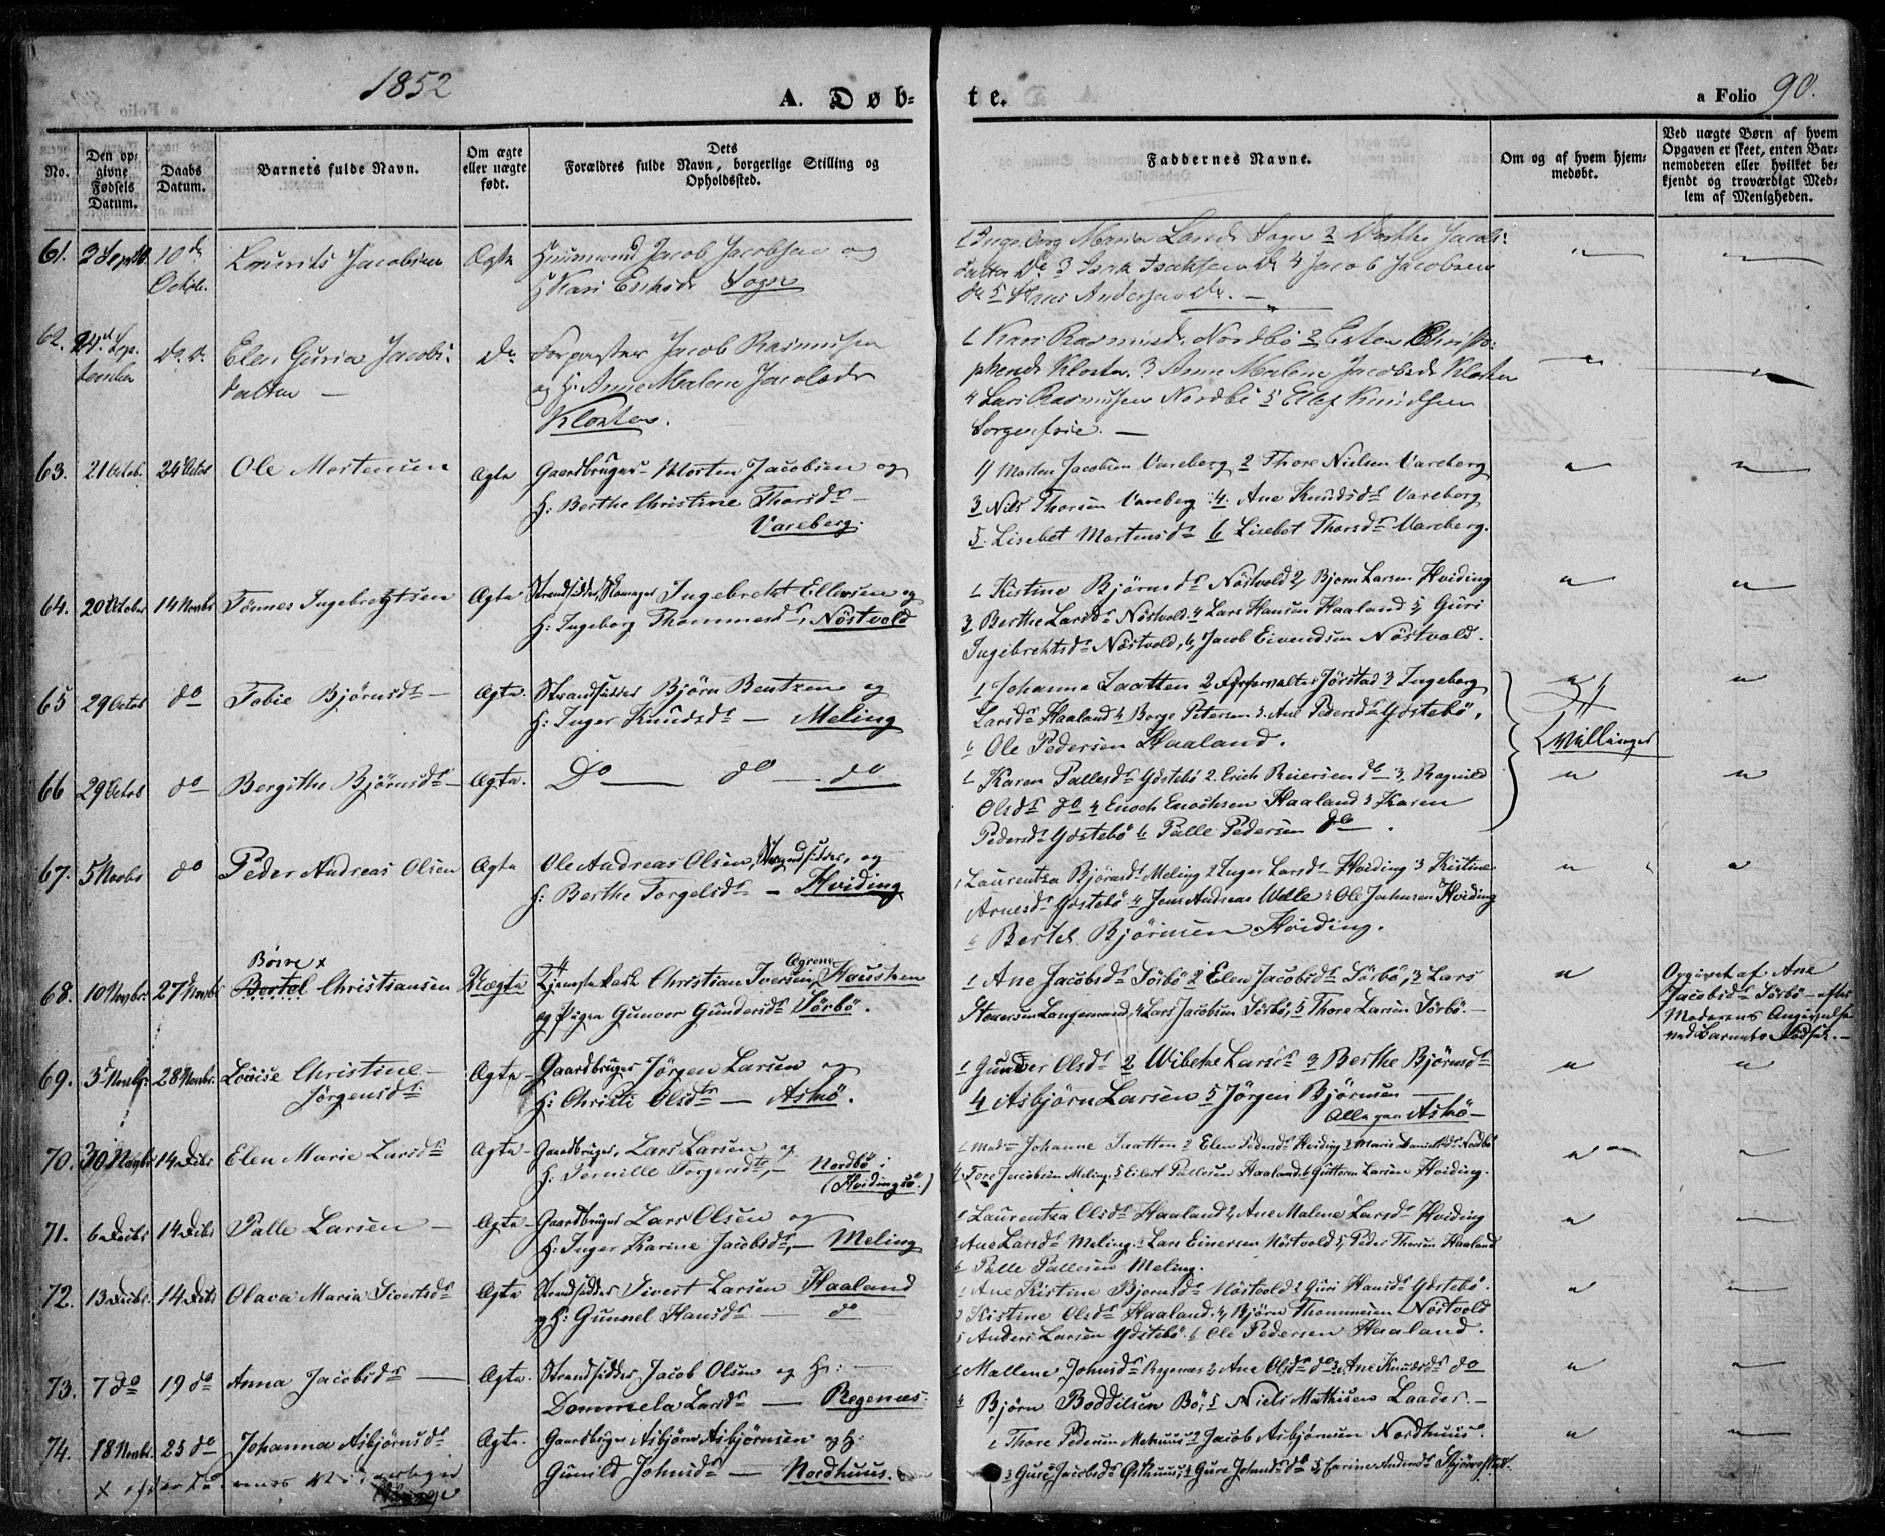 1852
A. Døb-
te.
a Folio 90.
No.
Den op-
givne
Fødsels
Datum.
Daabs
Datum.
Barnets fulde Navn.
Om ægte
eller uægte
født.
Dets
Forældres fulde Navn, borgerlige Stilling og
Opholdssted.
Faddernes Navne.
Om og af hvem hjem-
medøbt.
Ved uægte Børn af hvem
Opgaven er skeet, enten Bar-
nemoderen eller hvilket be-
kjendt og troværdigt Med-
lem af Menigheden.
61. 2 Septb. 10 de Laurits Jacobsen Ægte Huusmand Jacob Jacobsen og
Octbr. H Kari Erichsd. Sogn
1 Ingeborg Maria Sogn 2 Berthe Jacobs-
datter Do 3 Isak Isaksen Do 4 Jacob Jacobsen
Do 5 Hans Andersen Do. —
62. 24de Sep- do. do. Elen Guria Jacobs- do Forpagter Jacob Rasmusen
tember datter — og H. Anne Malene Jacobsdr
Kloster.
1 Kari Rasmusd. Nordbö 2 Esten Christo-
phersen Kloster. 3 Anne Malene Jacobsd. Kloster
4 Lars Rasmusen Nordbö 5 Ellef Knudsen
Sorgenfrie. —
63. 21 Octob. 24 Octob Ole Mortensen Ægte Gaardbruger Morten Jacobsen og
H: Berthe Christine Thorsdr —
Vareberg.
1) Morten Jacobsen Vareberg 2 Thore Nielsen Vareberg
3 Nils Thorsen Vareberg 4. Ane Knudsdr Vareberg
5. Lisebet Mortensdr 6 Lisebet Thorsdr Vareberg.
64. 20 October 14 Novbr Tönnes Ingebretsen Ægte Strandsidder, Skomager Ingebrekt Ellevsen og
H: Ingeborg Thommesdr, Nöstvold
1 Kistine Björnsdr Nöstvold 2, Bjorn Larsen Hviding
3 Berthe Larsdr Nöstvold 4 Lars Hansen Haaland 5, Guri
Ingebrehtsdr Nöstvold, 6, Jacob Eivendsen Nöstvold.
65 29 Octob do Tobie Björnsdr — Ægte. Strandsidder Björn Bentzen og
H: Inger Knudsdr — Meling
1 Johanna Taatten 2 Jörstad 3 Ingeborg
Larsdr Haaland 4 Borge Petersen 5. Ane Pedersdr Ydstebö.
6 Ole Pedersen Haaland.
Tvillinger
66 29 Octob do Bergithe Björnsdr — Ægte. Do — do — do
1 Karen Pallesdr Ydstebö 2. Erich Reiersen do — 3. Ragnild
Olsdr do 4 Enoch Enochsen Haaland 5 Karen
Pedersdr Ydstebö 6 Palle Pedersen do.
67. 5 Novbr do Peder Andreas Olsen Ægte Ole Andreas Olsen, Strandsidder, og
H: Berthe Torgelsdr — Hviding
1 Laurentza Björnsdr Meling 2 Inger Larsdr Hviding 3 Kistine
Arnesdr Ydstebö 4 Jens Andreas Wolle 5 Ole Johnsen Hviding
6 Bertel Björnsen Hviding.
Börre x
68. 10 Novbr. 27 Novbr Bertel Christiansen Uægte Tjenestekarl Christian Iversen, Haustken
og Pigen Gunvor Gundersdr Sörbö.
1 Ane Jacobsdr Sörbö 2 Elen Jacobsdr Sörbö, 3 Lars
Langemand, 4 Lars Jacobsen Sörbö, 5 Thore Larsen Sörbö. —
Opgivet af Ane
Jacobsdr Sörbö — efter
Moderens Angivelse
ved Barnets Födsel. —
69. 3d Novbr. 28 Novbr. Lovise Christine — Ægte — Gaardbruger Jörgen Larsen og
Jörgensdr. H: Christi Olsdr — Askö.
1 Gunder Olsdr 2 Wibeke Larsdr 3 Berthe Björnsdr
4 Asbjörn Larsen 5 Jörgen Björnsen —
Alle paa Askö —
70. 30 Novbr 14 Decbr Elen Marie Larsdr Ægte — Gaardbruger, Lars Larsen og
H: Pernille Torgersdtr, — Nordbö i
(Hvidingsö.)
1 Mad. Johanne Taatten 2 Elen Pedersdr Hviding 3 Marie Danielsdr Nordbö
4. Tore Jacobsen Meling. 5 Eilert Pallesen Haaland 6 Guttorm Larsen Hviding.
71. 6 Decbr 14 Decbr Palle Larsen — Ægte — Gaardbruger Lars Olsen og
H: Inger Karine Jacobsdr, — Meling
1 Laurentza Olsdr Haaland 2, Ane Malene Larsdr Hviding
3 Ane Larsdr Meling 4 Lars Einersen Nöstvold 5, Peder Thorsen Haaland
6 Palle Pallesen Meling.
72. 13 Decbr. 14 Decbr Olava Maria Sivertsdr Ægte Strandsidder Sivert Larsen Haaland
og H: Gunnel Hansdr — do
1 Ane Kistine Bjornsdr Nöstvold 2 Guri Hansdr Ydstebö.
3 Kistine Olsdr Haaland. 4, Björn Thommesen Nöstvold
5 Anders Larsen Ydstebö. 6 Ole Pedersen Haaland.
73. 7 do 19 do Anna Jacobsdr — Ægte. Strandsidder Jacob Olsen og H: —
Dommela Larsdr — Regenæs.
1 Mallene Johnsdr Regenæs 2, Ane Olsdr do 3, Ane Knudsdr do
4 Björn Boddelsen Bö, 5 Niels Mathisen Laader. —
74. 18 Novbr. 25 do Johanna Asbjörnsdr Ægte. Gaardbruger Asbjörn Asbjörnsen og H:
Gunild Johnsdr — Nordhuus.
1 Thore Pedersen Mehuus 2 Jacob Asbjörnsen Nordhuus.
3 Gure Jacobsdr Östhuus, 4 Gure Johnsdr do 5,